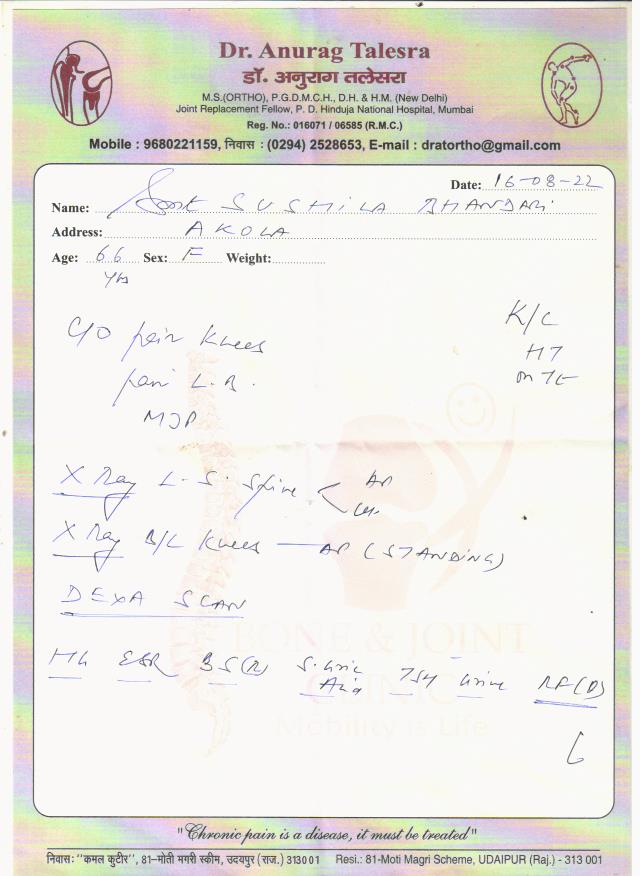 Dr. Anurag Talesra
डॉ. अनुराग तलेसरा
M.S.(ORTHO), P.G.D.M.C.H., D.H. & H.M. (New Delhi)
Joint Replacement Fellow, P. D. Hinduja National Hospital, Mumbai
Reg. No.: 016071 / 06585 (R.M.C.)
Mobile : 9680221159, निवास : (0294) 2528653, E-mail : dratortho@gmail.com
Date: 16-08-22
Name: Smt SUSHILA BHANDARI
Address: AKOLA
Age: 66 Sex: F Weight:
yrs
C/O pain Knees
K/C
HT
pain L.B.
MJP
X Ray L-S. Spine < AP
Lat
X Ray B/L Knees — AP (STANDING)
DEXA SCAN
Hb ESR BS(R) S. Uric Acid TSH Urine RF(P)
BONE & JOINT
CLINIC
Mobility is Life
"Chronic pain is a disease, it must be treated"
निवास: "कमल कुटीर", 81-मोती मगरी स्कीम, उदयपुर (राज.) 313001 Resi.: 81-Moti Magri Scheme, UDAIPUR (Raj.) - 313 001